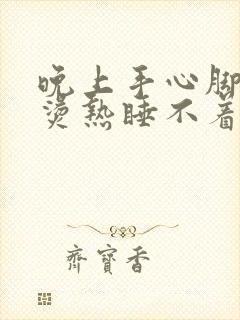 晚上手心脚
烫热睡不着
齊寶香